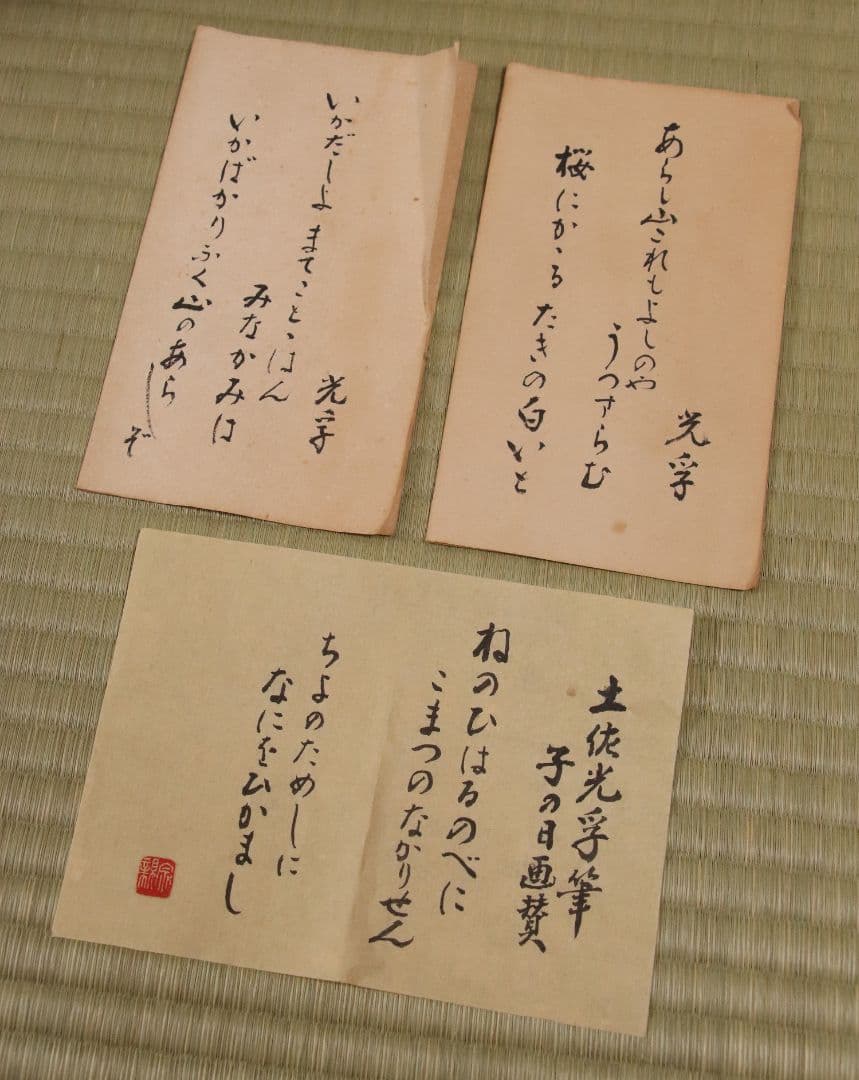 光孚
あらし山これもよしのや
うつすらむ
桜にかゝるたきの白いと
光孚
いかだしよまてことゝはん
みなかみは
いかばかりふく山のあらしぞ
土佐光孚筆
子の日画賛
ねのひはるのべに
こまつのなかりせん
ちよのためしに
なにをひかまし